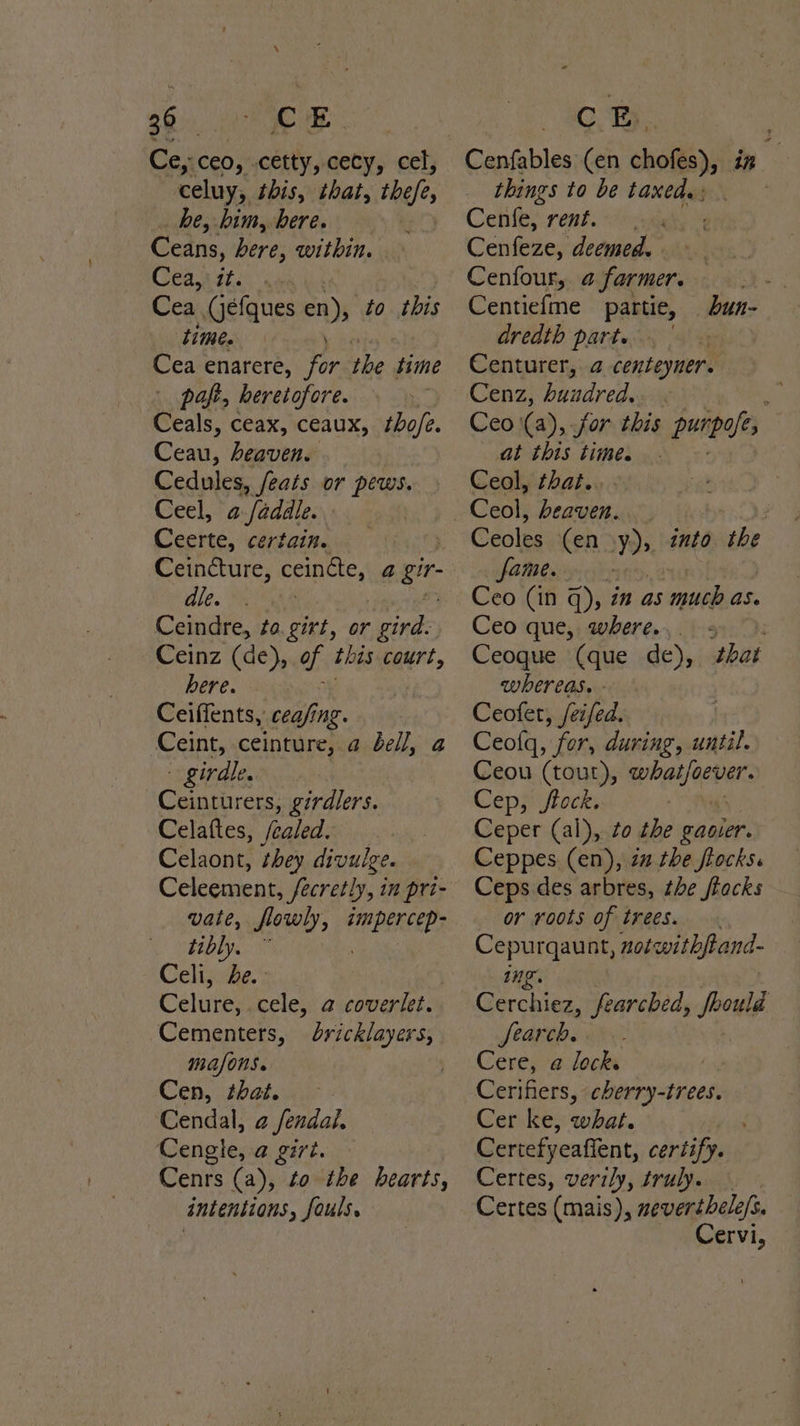 36 C E
Ce, ceo, cetty, cecy, cel,
celuy, this, that, theſe,
he, him, here.
Ceans, here, within.
Cea, it.
Cea (jéſques en), to this
time.
Cea enarere, for the time
paſt, heretofore.
Ceals, ceax, ceaux, thoſe.
Ceau, heaven.
Cedules, ſeats or pews.
Ceel, a ſaddle.
Ceerte, certain.
Ceincture, ceincte, a gir-
dle.
Ceindre, to girt, or gird.
Ceinz (de), of this court,
here.
Ceiſſents, ceaſing.
Ceint, ceinture, a bell, a
girdle.
Ceinturers, girdlers.
Celaſtes, ſealed.
Celaont, they divulge.
Celeement, ſecretly, in pri-
vate, ſlowly, impercep-
tibly.
Celi, he.
Celure, cele, a coverlet.
Cementers, bricklayers,
maſons.
Cen, that.
Cendal, a ſendal.
Cengle, a girt.
Cenrs (a), to the hearts,
intentions, ſouls.
C E
Cenſables (en choſes), in
things to be taxed.
Cenſe, rent.
Cenſeze, deemed.
Cenſour, a farmer.
Centieſme partie, hun-
dredth part.
Centurer, a centeyner.
Cenz, hundred.
Ceo (a), for this purpoſe,
at this time.
Ceol, that.
Ceol, heaven.
Ceoles (en y), into the
ſame.
Ceo (in q̄), in as much as.
Ceo que, where.
Ceoque (que de), that
whereas.
Ceofet, ſeiſed.
Ceoſq, for, during, until.
Ceou (tout), whatſoever.
Cep, ſtock.
Ceper (al), to the gaoler.
Ceppes (en), in the ſtocks.
Ceps des arbres, the ſtocks
or roots of trees.
Cepurqaunt, notwithſtand-
ing.
Cerchiez, ſearched, ſhould
ſearch.
Cere, a lock.
Cerifiers, cherry-trees.
Cer ke, what.
Certefyeaſſent, certify.
Certes, verily, truly.
Certes (mais), nevertheleſs.
Cervi,